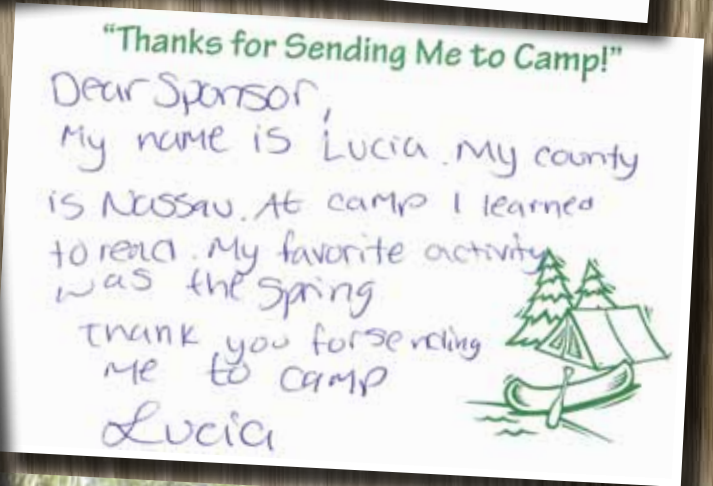 “Thanks for Sending Me to Camp!”
Dear Sponsor,
My name is Lucia. My county
is Nassau. At camp I learned
to read. My favorite activity
was the spring
Thank you for sending
me to camp
Lucia